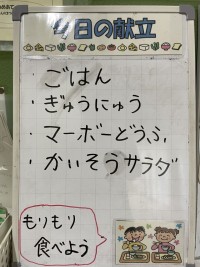 今日の献立
・ごはん
・ぎゅうにゅう
・マーボーどうふ
・かいそうサラダ
もりもり
食べよう